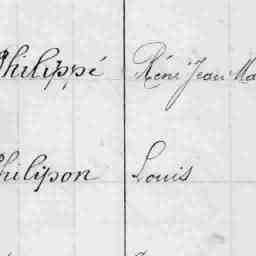 Philippé Réné Jean Ma
Philipon Louis